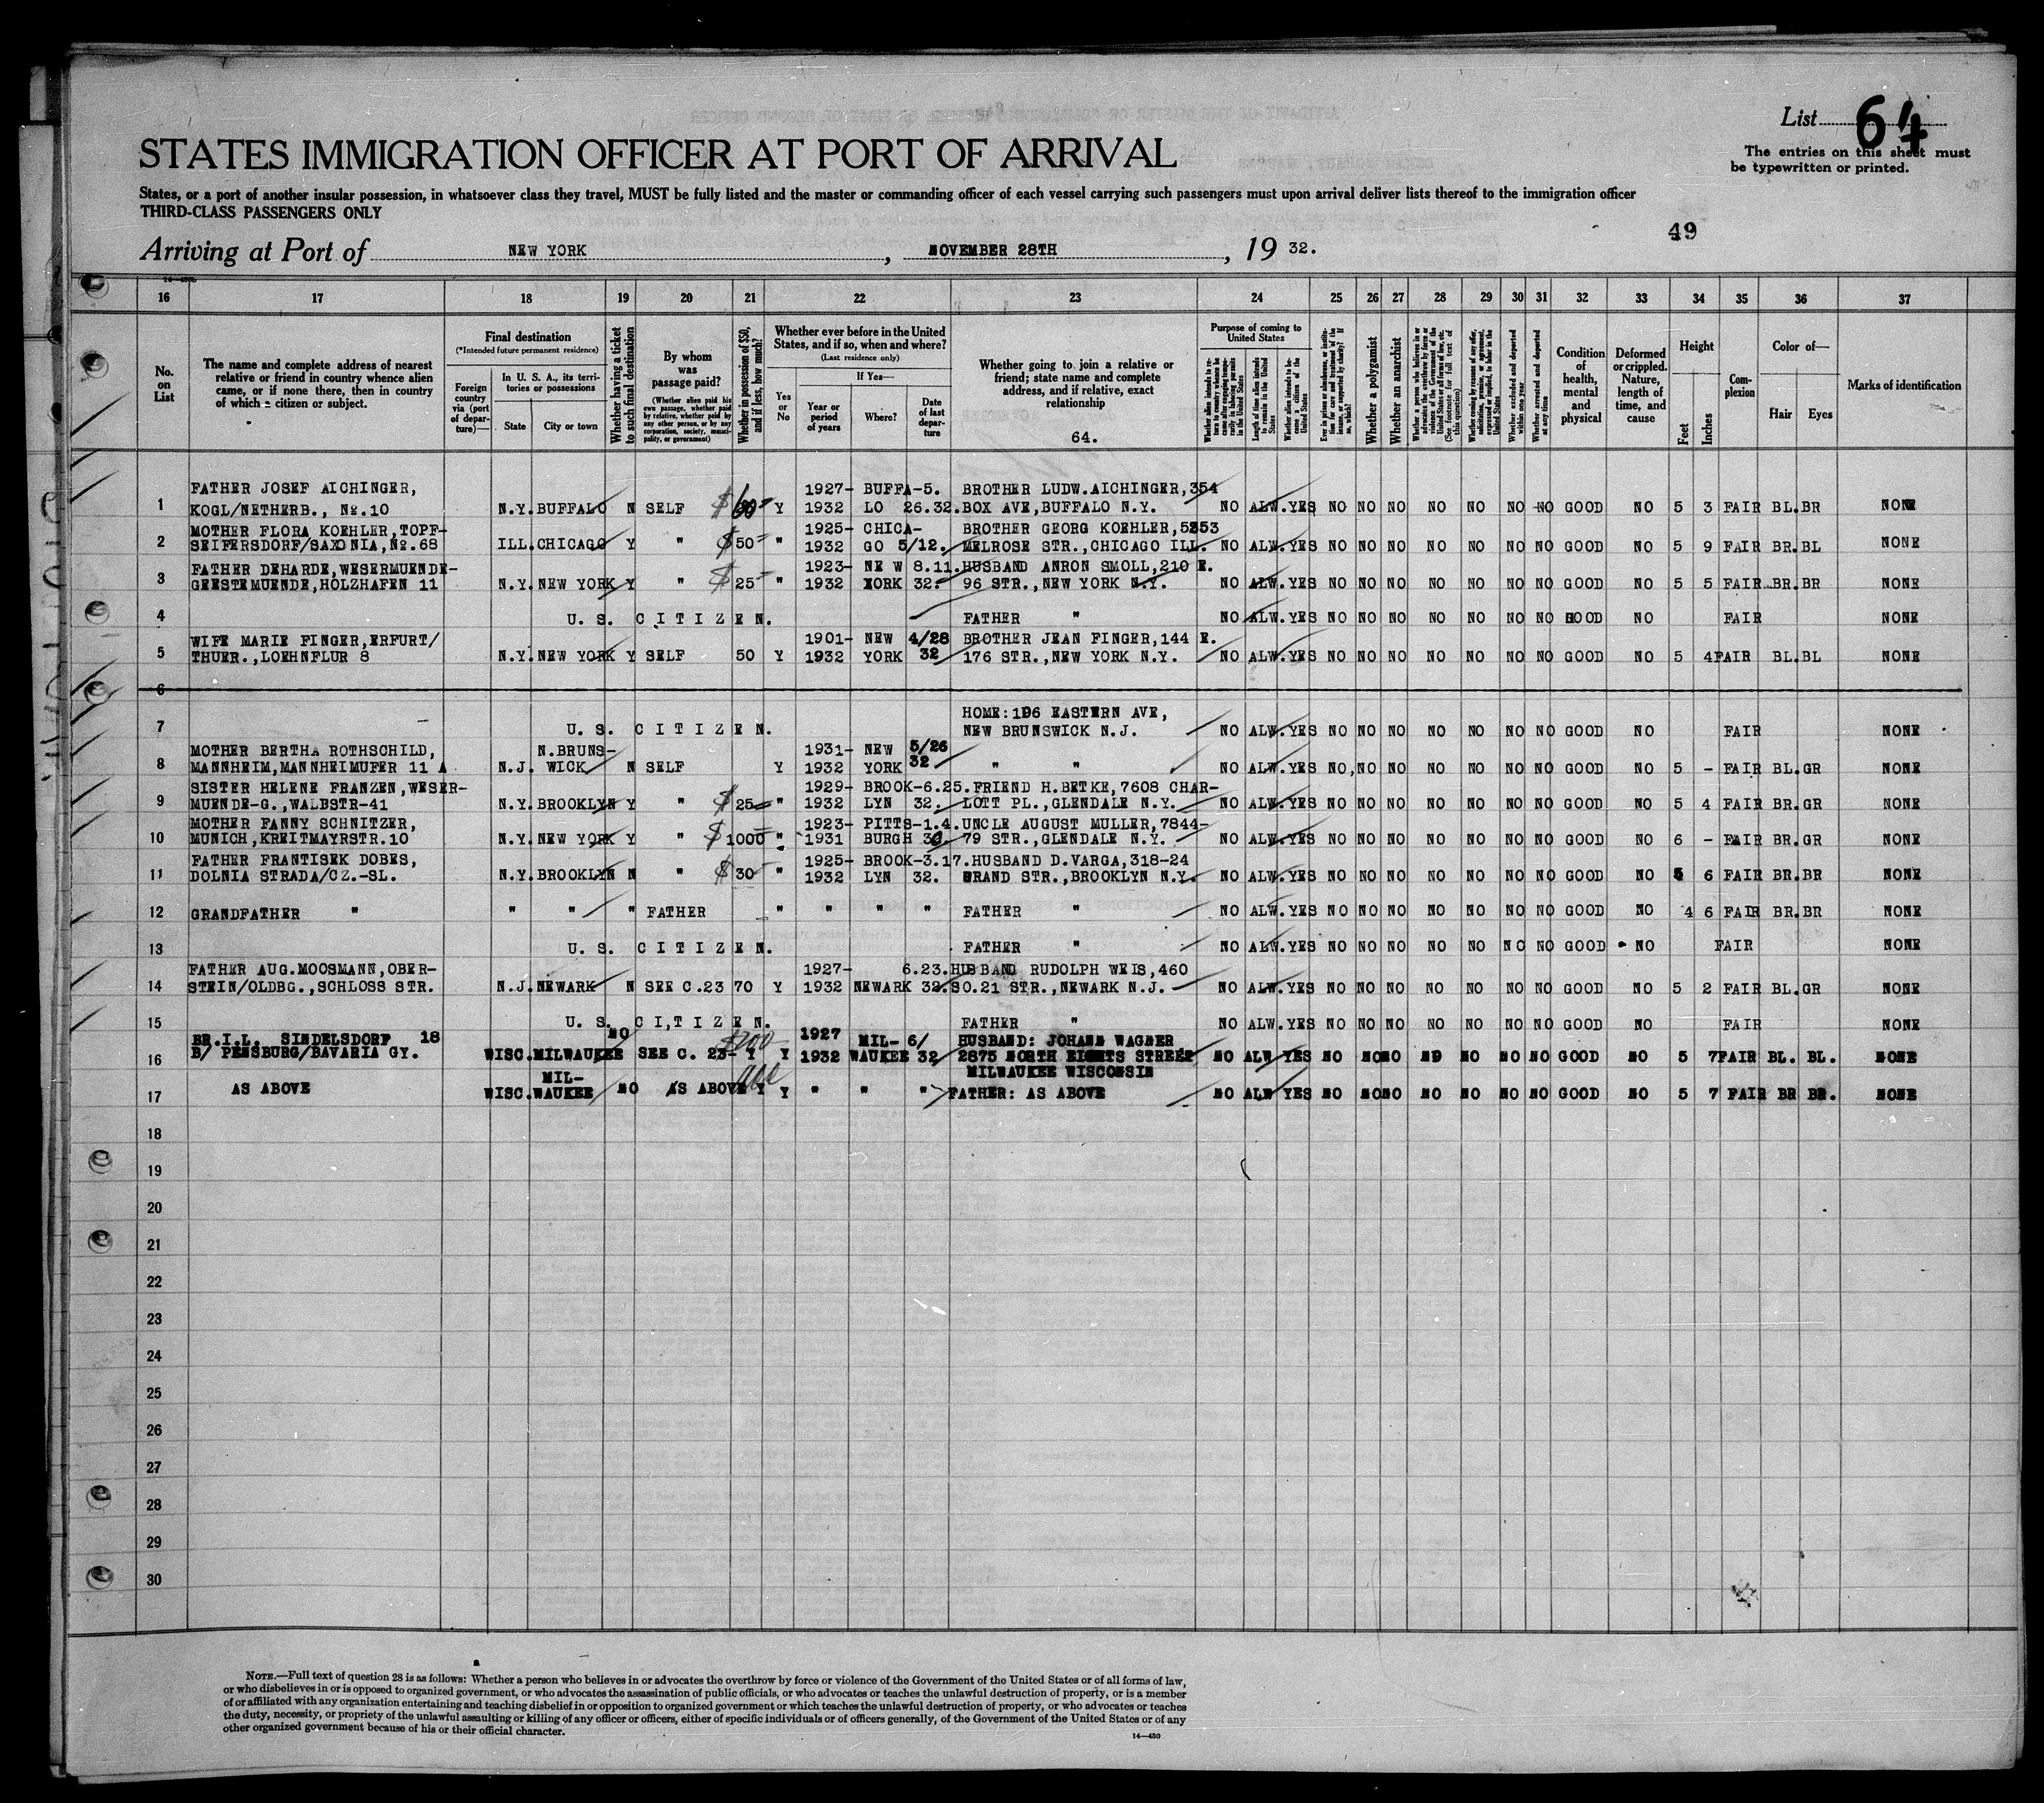 List 64
STATES IMMIGRATION OFFICER AT PORT OF ARRIVAL
The entries on this sheet must
be typewritten or printed.
States, or a port of another insular possession, in whatsoever class they travel, MUST be fully listed and the master or commanding officer of each vessel carrying such passengers must upon arrival deliver lists thereof to the immigration officer
THIRD-CLASS PASSENGERS ONLY
49
Arriving at Port of NEW YORK, NOVEMBER 28TH, 19 32.
16 17 18 19 20 21 22 23 24 25 26 27 28 29 30 31 32 33 34 35 36 37
No. on List
The name and complete address of nearest
relative or friend in country whence alien
came, or if none there, then in country
of which a citizen or subject.
Final destination
(*Intended future permanent residence)
Foreign country via (port of departure)—
In U. S. A., its territories or possessions
State
City or town
Whether having a ticket to such final destination
By whom was passage paid?
(Whether alien paid his own passage, whether paid by relative, whether paid by any other person, or by any corporation, society, municipality, or government)
Whether in possession of $50, and if less, how much?
Whether ever before in the United
States, and if so, when and where?
(Last residence only)
Yes or No
If Yes—
Year or period of years
Where?
Date of last departure
Whether going to join a relative or
friend; state name and complete
address, and if relative, exact
relationship
64.
Purpose of coming to United States
Length of time alien intends to remain in the United States
Whether alien intends to become a citizen of the United States
Whether a polygamist
Whether an anarchist
Whether excluded and deported within one year
Whether arrested and deported at any time
Condition of health, mental and physical
Deformed or crippled. Nature, length of time, and cause
Height
Feet
Inches
Complexion
Color of—
Hair
Eyes
Marks of identification
FATHER JOSEF AICHINGER, 1927- BUFFA-5. BROTHER LUDW.AICHINGER,354
1 KOGL/NETHERB., No.10 N.Y. BUFFALO N SELF $ 60- Y 1932 LO 26.32. BOX AVE,BUFFALO N.Y. NO ALW. YES NO NO NO NO NO NO NO GOOD NO 5 3 FAIR BL.BR NONE
MOTHER FLORA KOEHLER,TOPF- 1925- CHICA- BROTHER GEORG KOEHLER,5253
2 SEIFERSDORF/SAXONIA,No.68 ILL. CHICAGO Y " $50- " 1932 GO 5/12. MELROSE STR.,CHICAGO ILL. NO ALW. YES NO NO NO NO NO NO NO GOOD NO 5 9 FAIR BR.BL NONE
FATHER DEHARDE,WESERMUENDE- 1923- NEW 8.11. HUSBAND ANRON SMOLL,210 E.
3 GEESTEMUENDE,HOLZHAFEN 11 N.Y. NEW YORK Y " $25- " 1932 YORK 32. 96 STR.,NEW YORK N.Y. NO ALW. YES NO NO NO NO NO NO NO GOOD NO 5 5 FAIR BR.BR NONE
4 U. S. CITIZEN. FATHER " NO ALW. YES NO NO NO NO NO NO NO GOOD NO FAIR NONE
WIFE MARIE FINGER,ERFURT/ 1901- NEW 4/28 BROTHER JEAN FINGER,144 E.
5 THUER.,LOEHNFLUR 8 N.Y. NEW YORK Y SELF 50 Y 1932 YORK 32 176 STR.,NEW YORK N.Y. NO ALW. YES NO NO NO NO NO NO NO GOOD NO 5 4 FAIR BL.BL NONE
6
HOME:196 EASTERN AVE,
7 U. S. CITIZEN. NEW BRUNSWICK N.J. NO ALW. YES NO NO NO NO NO NO NO GOOD NO FAIR NONE
MOTHER BERTHA ROTHSCHILD, N.BRUNS- 1931- NEW 5/26
8 MANNHEIM,MANNHEIMUFER 11 A N.J. WICK N SELF Y 1932 YORK 32 " " NO ALW. YES NO, NO NO NO NO NO NO GOOD NO 5 - FAIR BL.GR NONE
SISTER HELENE FRANZEN,WESER- 1929- BROOK-6.25. FRIEND H.BETKE,7608 CHAR-
9 MUENDE-G.,WALDSTR-41 N.Y. BROOKLYN Y " $25- " 1932 LYN 32. LOTT PL.,GLENDALE N.Y. NO ALW. YES NO NO NO NO NO NO NO GOOD NO 5 4 FAIR BR.GR NONE
MOTHER FANNY SCHNITZER, 1923- PITTS-1.4. UNCLE AUGUST MULLER,7844-
10 MUNICH,KREITMAYRSTR.10 N.Y. NEW YORK Y " $1000 " 1931 BURGH 79 STR.,GLENDALE N.Y. NO ALW. YES NO NO NO NO NO NO NO GOOD NO 6 - FAIR BR.GR NONE
FATHER FRANTISEK DOBES, 1925- BROOK-3.17. HUSBAND D.VARGA,318-24
11 DOLNIA STRADA/CZ.-SL. N.Y. BROOKLYN N " $30- " 1932 LYN 32. GRAND STR.,BROOKLYN N.Y. NO ALW. YES NO NO NO NO NO NO NO GOOD NO 5 6 FAIR BR.BR NONE
12 GRANDFATHER " " " " FATHER " " " " FATHER " NO ALW. YES NO NO NO NO NO NO NO GOOD NO 4 6 FAIR BR.BR NONE
13 U. S. CITIZEN. FATHER " NO ALW. YES NO NO NO NO NO NO NO GOOD NO FAIR NONE
FATHER AUG.MOOSMANN,OBER- 1927- 6.23. HUSBAND RUDOLPH WEIS,460
14 STEIN/OLDBG.,SCHLOSS STR. N.J. NEWARK N SEE C.23 70 Y 1932 NEWARK 32. SO.21 STR.,NEWARK N.J. NO ALW. YES NO NO NO NO NO NO NO GOOD NO 5 2 FAIR BL.GR NONE
15 U. S. CITIZEN. FATHER " NO ALW. YES NO NO NO NO NO NO NO GOOD NO FAIR NONE
BR.I.L. SINDELSDORF 18 NO $200 1927 MIL- 6/ HUSBAND: JOHANN WAGNER
16 B/ PENSBURG/BAVARIA GY. WISC. MILWAUKEE SEE C. 23- Y Y 1932 WAUKEE 32 2875 NORTH EIGHTS STREET NO ALW YES NO NO NO NO NO NO NO GOOD NO 5 7 FAIR BL. BL. NONE
MIL- MILWAUKEE WISCONSIN
17 AS ABOVE WISC. WAUKEE NO AS ABOVE Y Y " " " FATHER: AS ABOVE NO ALW YES NO NO NO NO NO NO NO GOOD NO 5 7 FAIR BR BR. NONE
18
19
20
21
22
23
24
25
26
27
28
29
30
NOTE.—Full text of question 28 is as follows: Whether a person who believes in or advocates the overthrow by force or violence of the Government of the United States or of all forms of law,
or who disbelieves in or is opposed to organized government, or who advocates the assassination of public officials, or who advocates or teaches the unlawful destruction of property, or is a member
of or affiliated with any organization entertaining and teaching disbelief in or opposition to organized government or which teaches the unlawful destruction of property, or who advocates or teaches
the duty, necessity, or propriety of the unlawful assaulting or killing of any officer or officers, either of specific individuals or of officers generally, of the Government of the United States or of any
other organized government because of his or their official character.
14—430